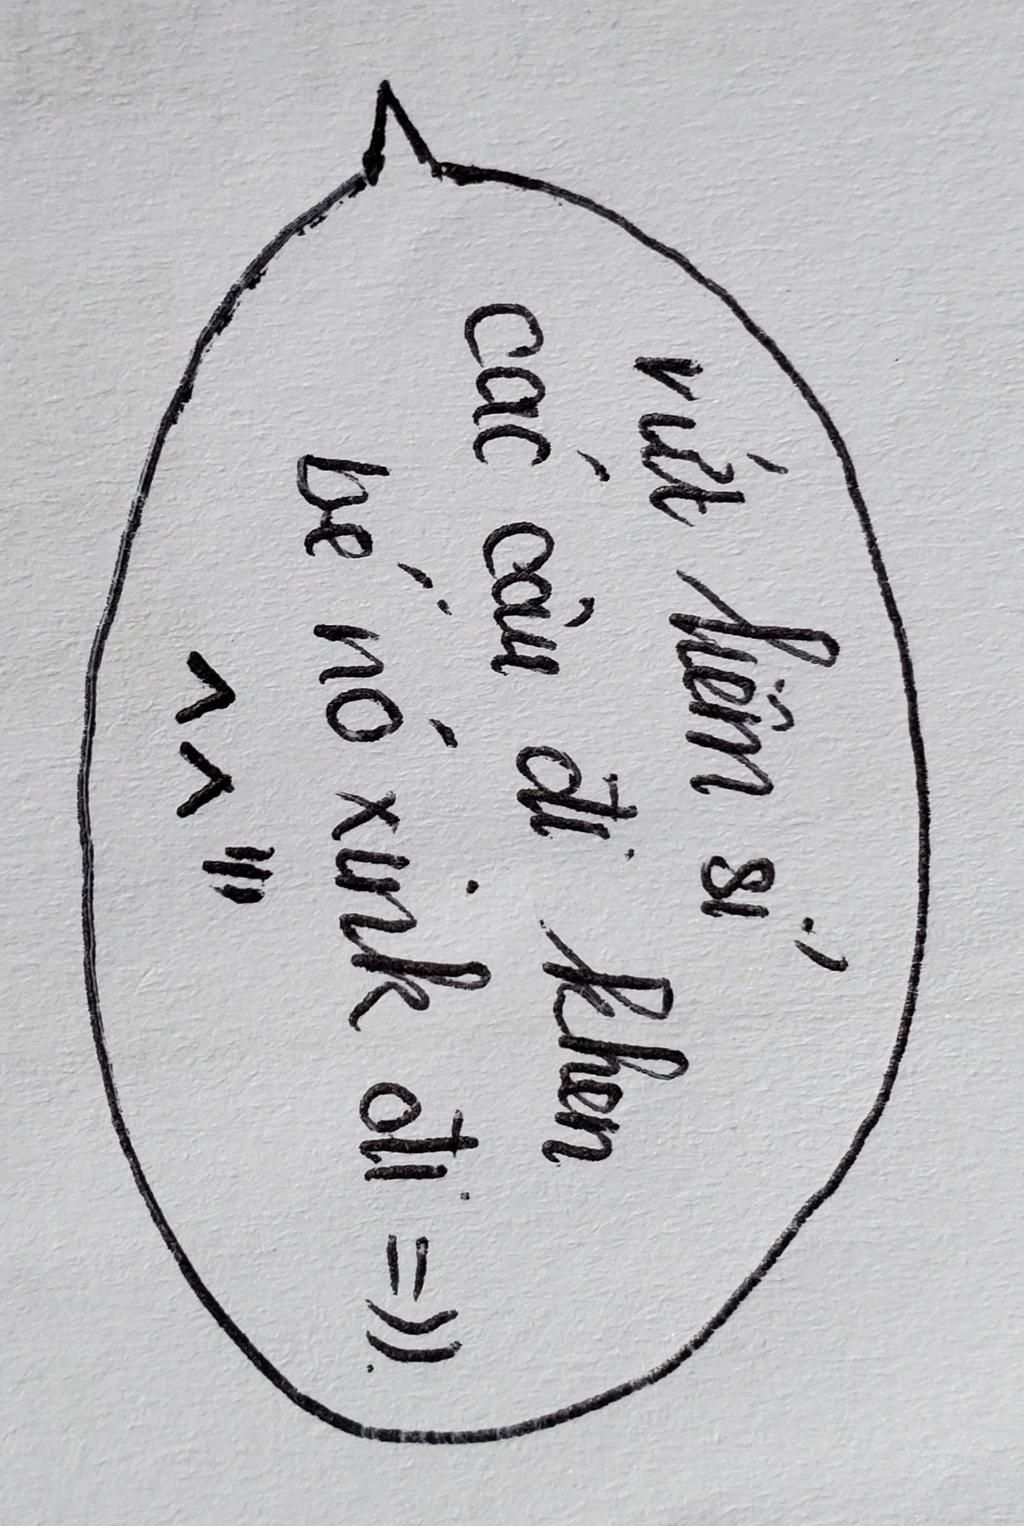 vứt liêm sỉ
các cậu đi khen
bé nó xink đi =))
^^"'